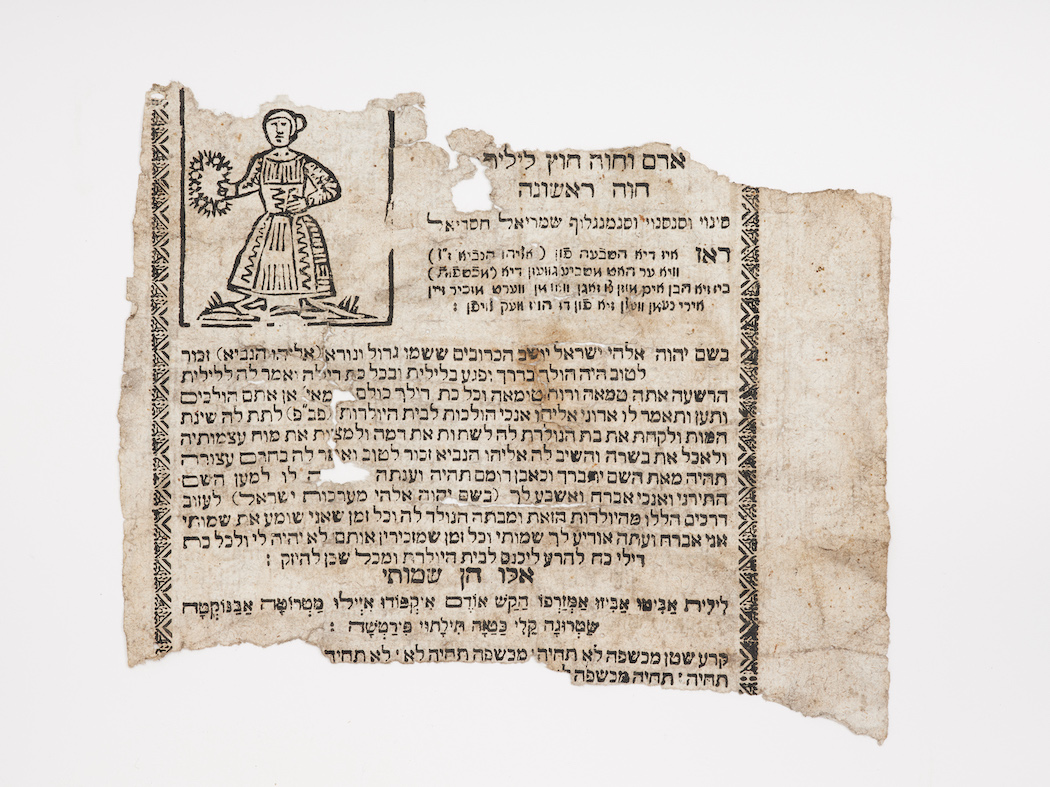 אדם וחוה חוץ לילית
חוה ראשונה
סינוי וסנסנוי וסנמנגלוף שמריאל חסדיאל
דאז איז דיא השבעה פון (אליהו הנביא ז"ל)
וויא ער האט משביע גוועזן דיא
בשם יהוה אלהי ישראל יושב הכרובים ששמו גדול ונורא (אליהו הנביא) זכור
לטוב היה הולך בדרך ויפגע בלילית ובכל כת דילה ואמר לה ללילית
הרשעה אתה טמאה ורוח טומאה וכל כת דילך כולם אן אתם הולכים
ותען ותאמר לו אדוני אליהו אנכי הולכות לבית היולדות (פב"פ) לתת לה שינת
המות ולקחת את בת הנולדת לה לשתות את דמה ולמצות את מוח עצמותיה
ולאכל את בשרה והשיב לה אליהו הנביא זכור לטוב ואמר לה בחרם עצורה
תהיה מאת השם יתברך וכאבן דומם תהיה וענתה לו למען השם
התירני ואנכי אברח ואשבע לך (בשם יהוה אלהי מערכות ישראל) לעזוב
דרכים הללו מהיולדות הזאת ומבתה הנולד לה וכל זמן שאני שומע את שמותי
אני אברח ועתה אודיע לך שמותי וכל זמן שמזכירין אותם לא יהיה לי ולכל כת
דילי כח להרע ליכנס לבית היולדת ומכל שכן להיזק :
אלו הן שמותי
לילית אביטו אביזו אמזרפו הקש אודם איקפודו איילו מטרוטה אבנוקטה
שטרונה קלי בטוה תילתוי פירטשה :
קרע שטן מכשפה לא תחיה מכשפה תחיה לא לא תחיה
תחיה תחיה מכשפה